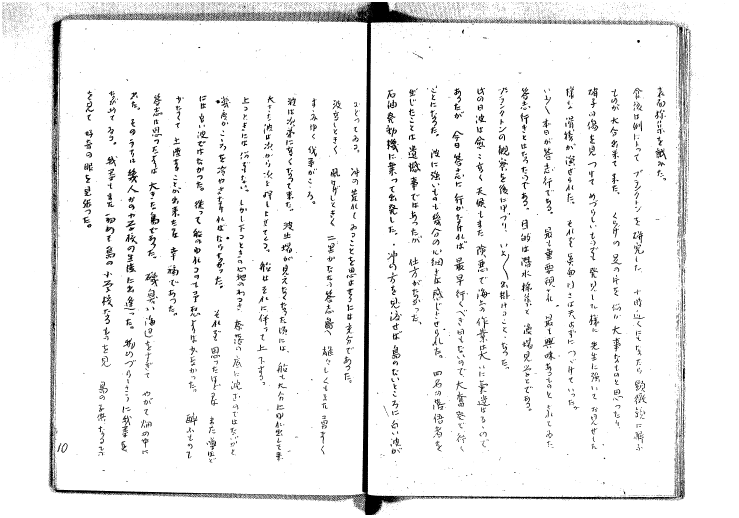 表面採集を試みた。
食後は例によってプランクトンを研究した 十時近くにもなったら顕微鏡に写る
ものが大分出来て来た。くらげの足の片を何か大事なものと思ったり、
硝子の傷を見つけてめづらしいものを発見した様に先生に強いてお見せした
様な滑稽が演ぜられた。それを真面目さは天ぷらにつづけていった。
いよいよ本日が答志行である。最も重要視され、最も興味あるものとされてゐた
答志行きとはなったのである。目的は潜水採集と漁場見学とである。
プランクトンの観察を後にゆづり いよいよ出掛けることになった。
此の日波は愈々高く天候もまた険悪で海上の作業は大いに業違はるゝので
あったが 今日答志に行かなければ最早行くべき日もないので大奮発で行く
ことになった。波に強いものも幾分の心細さは感じさせられた。四名の落伍者を
出したことは遺憾事ではあったが 仕方がなかった。
石油発動機に乗って出発した。沖の方を見渡せば島のないところに白い波が
たってゐる。沖の荒れてゐることを思はするには充分であった。
波立しきく 風はげしきく 二里かなたなる答志島へ 雄々しくもまた 勇ましく
すゝみゆく我事がこゝろ。
波は次第に高くなって来た。波止場が見えなくなった頃には、船も大分にゆれ出して来た
大きな波は次から次と押しよせてくる。船はそれに伴って上下する。
上ったときには何ともない。しかし下ったときの心地のわるさ 奈落の底に沈むのではないかと
幾度かこゝろを冷やさなければならなかった。それを思ったけどなほ また学ほど
には高い波ではなかった。従って船のゆれるのも予想よりは少なかった。酔ふものも
なくて上陸することが出来たのは幸福であった。
答志は思ったよりは大きな島であった。磯臭い海辺をすぎて やがて畑の中に
入た。そのうちには幾人かの小学校の生徒に出逢った。物めづらしさうに我事を
ながめてゐる。我事もまた初めて島の小学校なるものを見 島の子供なるもの
を見て 好奇の眼を見張った。
10